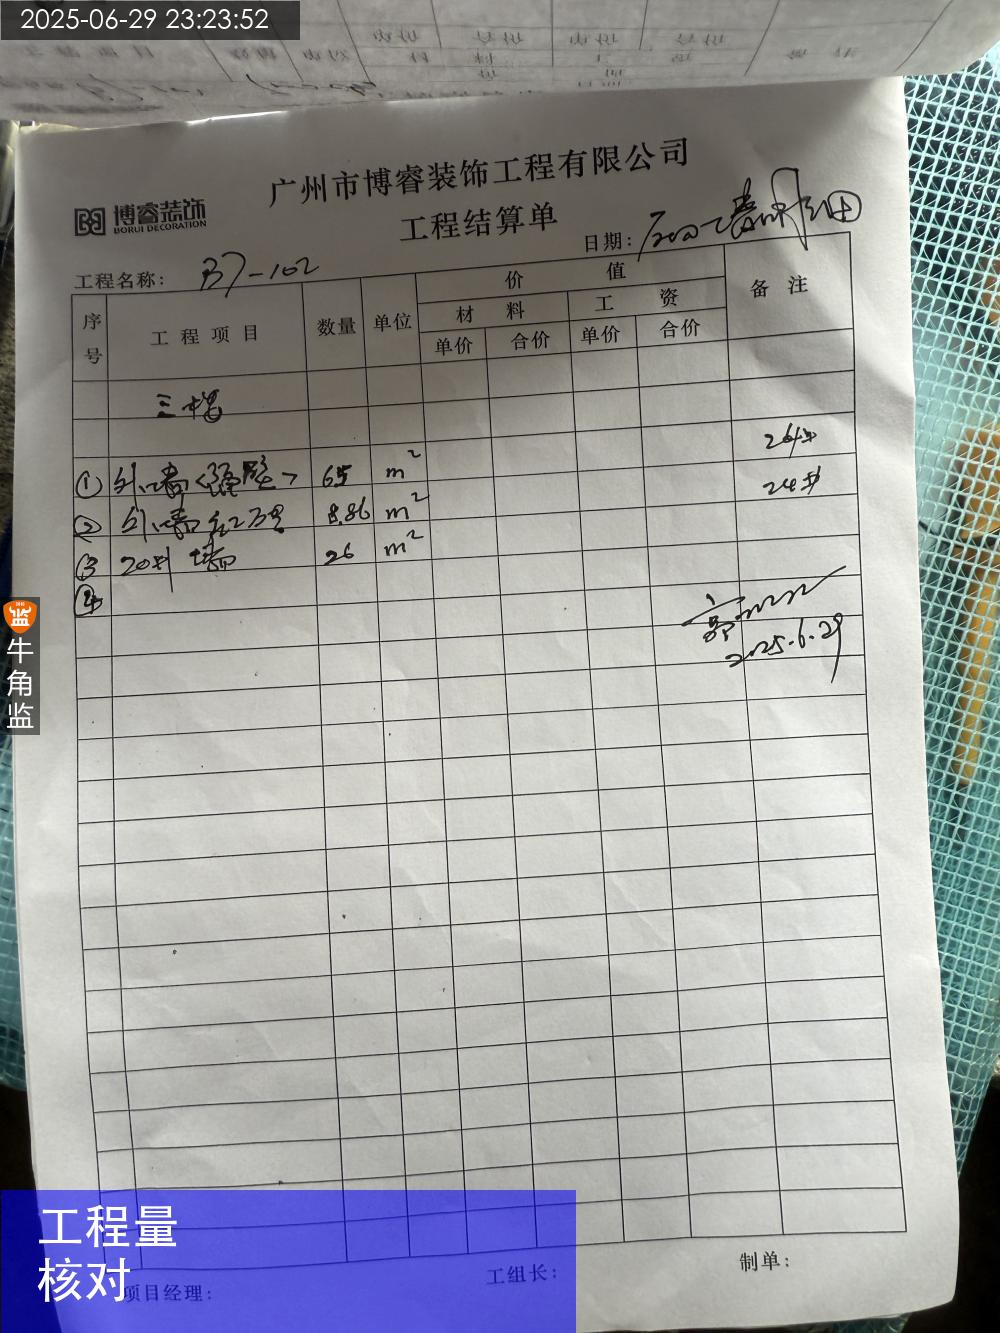 2025-06-29 23:23:52
广州市博睿装饰工程有限公司
博睿装饰
BORUI DECORATION
工程结算单
日期:
工程名称: B7-102
序号 工程项目 数量 单位 价值 备注
材料 工资
单价 合价 单价 合价
三楼
① 外墙 65 m² 26#
② 外墙 8.86 m² 24#
③ 20#墙 26 m²
④
2025.6.29
牛角监
工程量
核对
项目经理: 工组长: 制单: